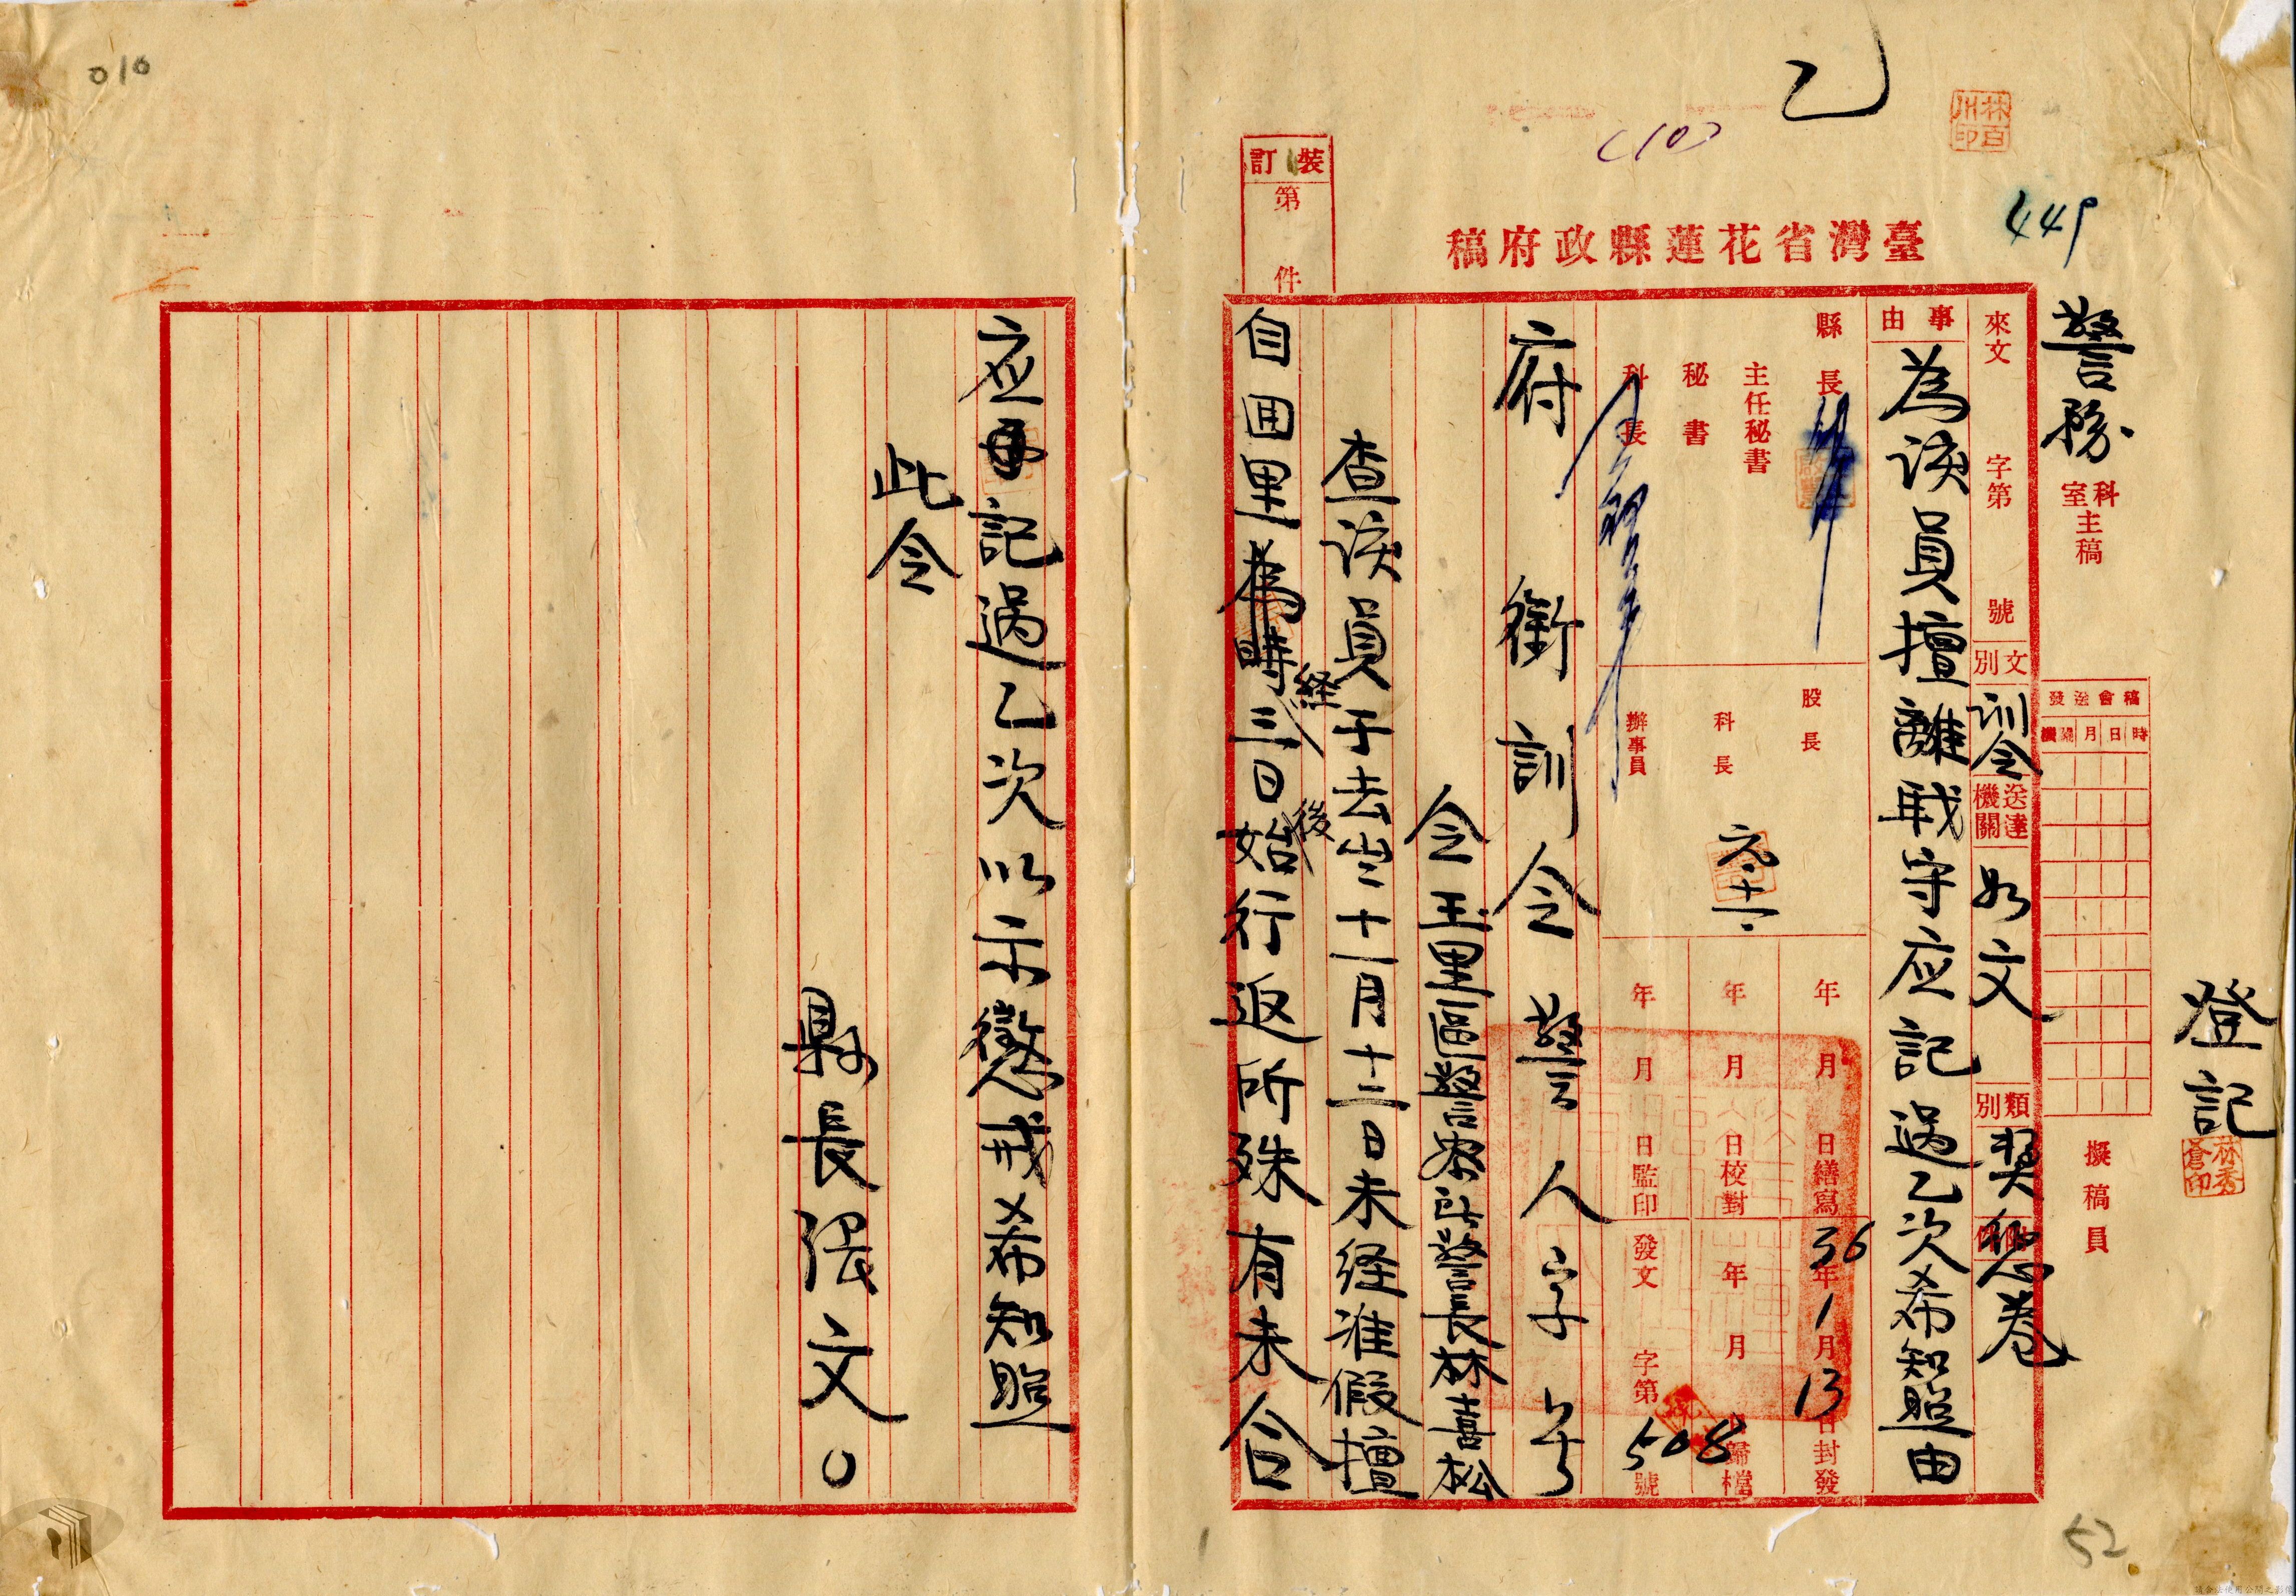 010
乙
(10)
林百川印
449
裝訂
第　件
臺灣省花蓮縣政府稿
警務科室主稿
擬稿員
登記
林秀倉印
稿會送發
時日月關機
來文　字第　號
文別　訓令
送達機關　如文
類別　獎懲卷
附件
事由
為該員擅離戰守应記過乙次希知照由
縣長
主任秘書
秘書
科長
股長
科長
辦事員
元、十一、
年月日繕寫
年月日校對
年月日監印
36年1月13日封發
年月日歸檔
發文　字第508號
府衔訓令　警人字号
令玉里區警察所警長林喜松
查該員于去年十一月十三日未経准假擅
自回里為時三日始行返所殊有未合
経
後
应記過乙次以示懲戒希知照
此令
縣長張文〇
1
52